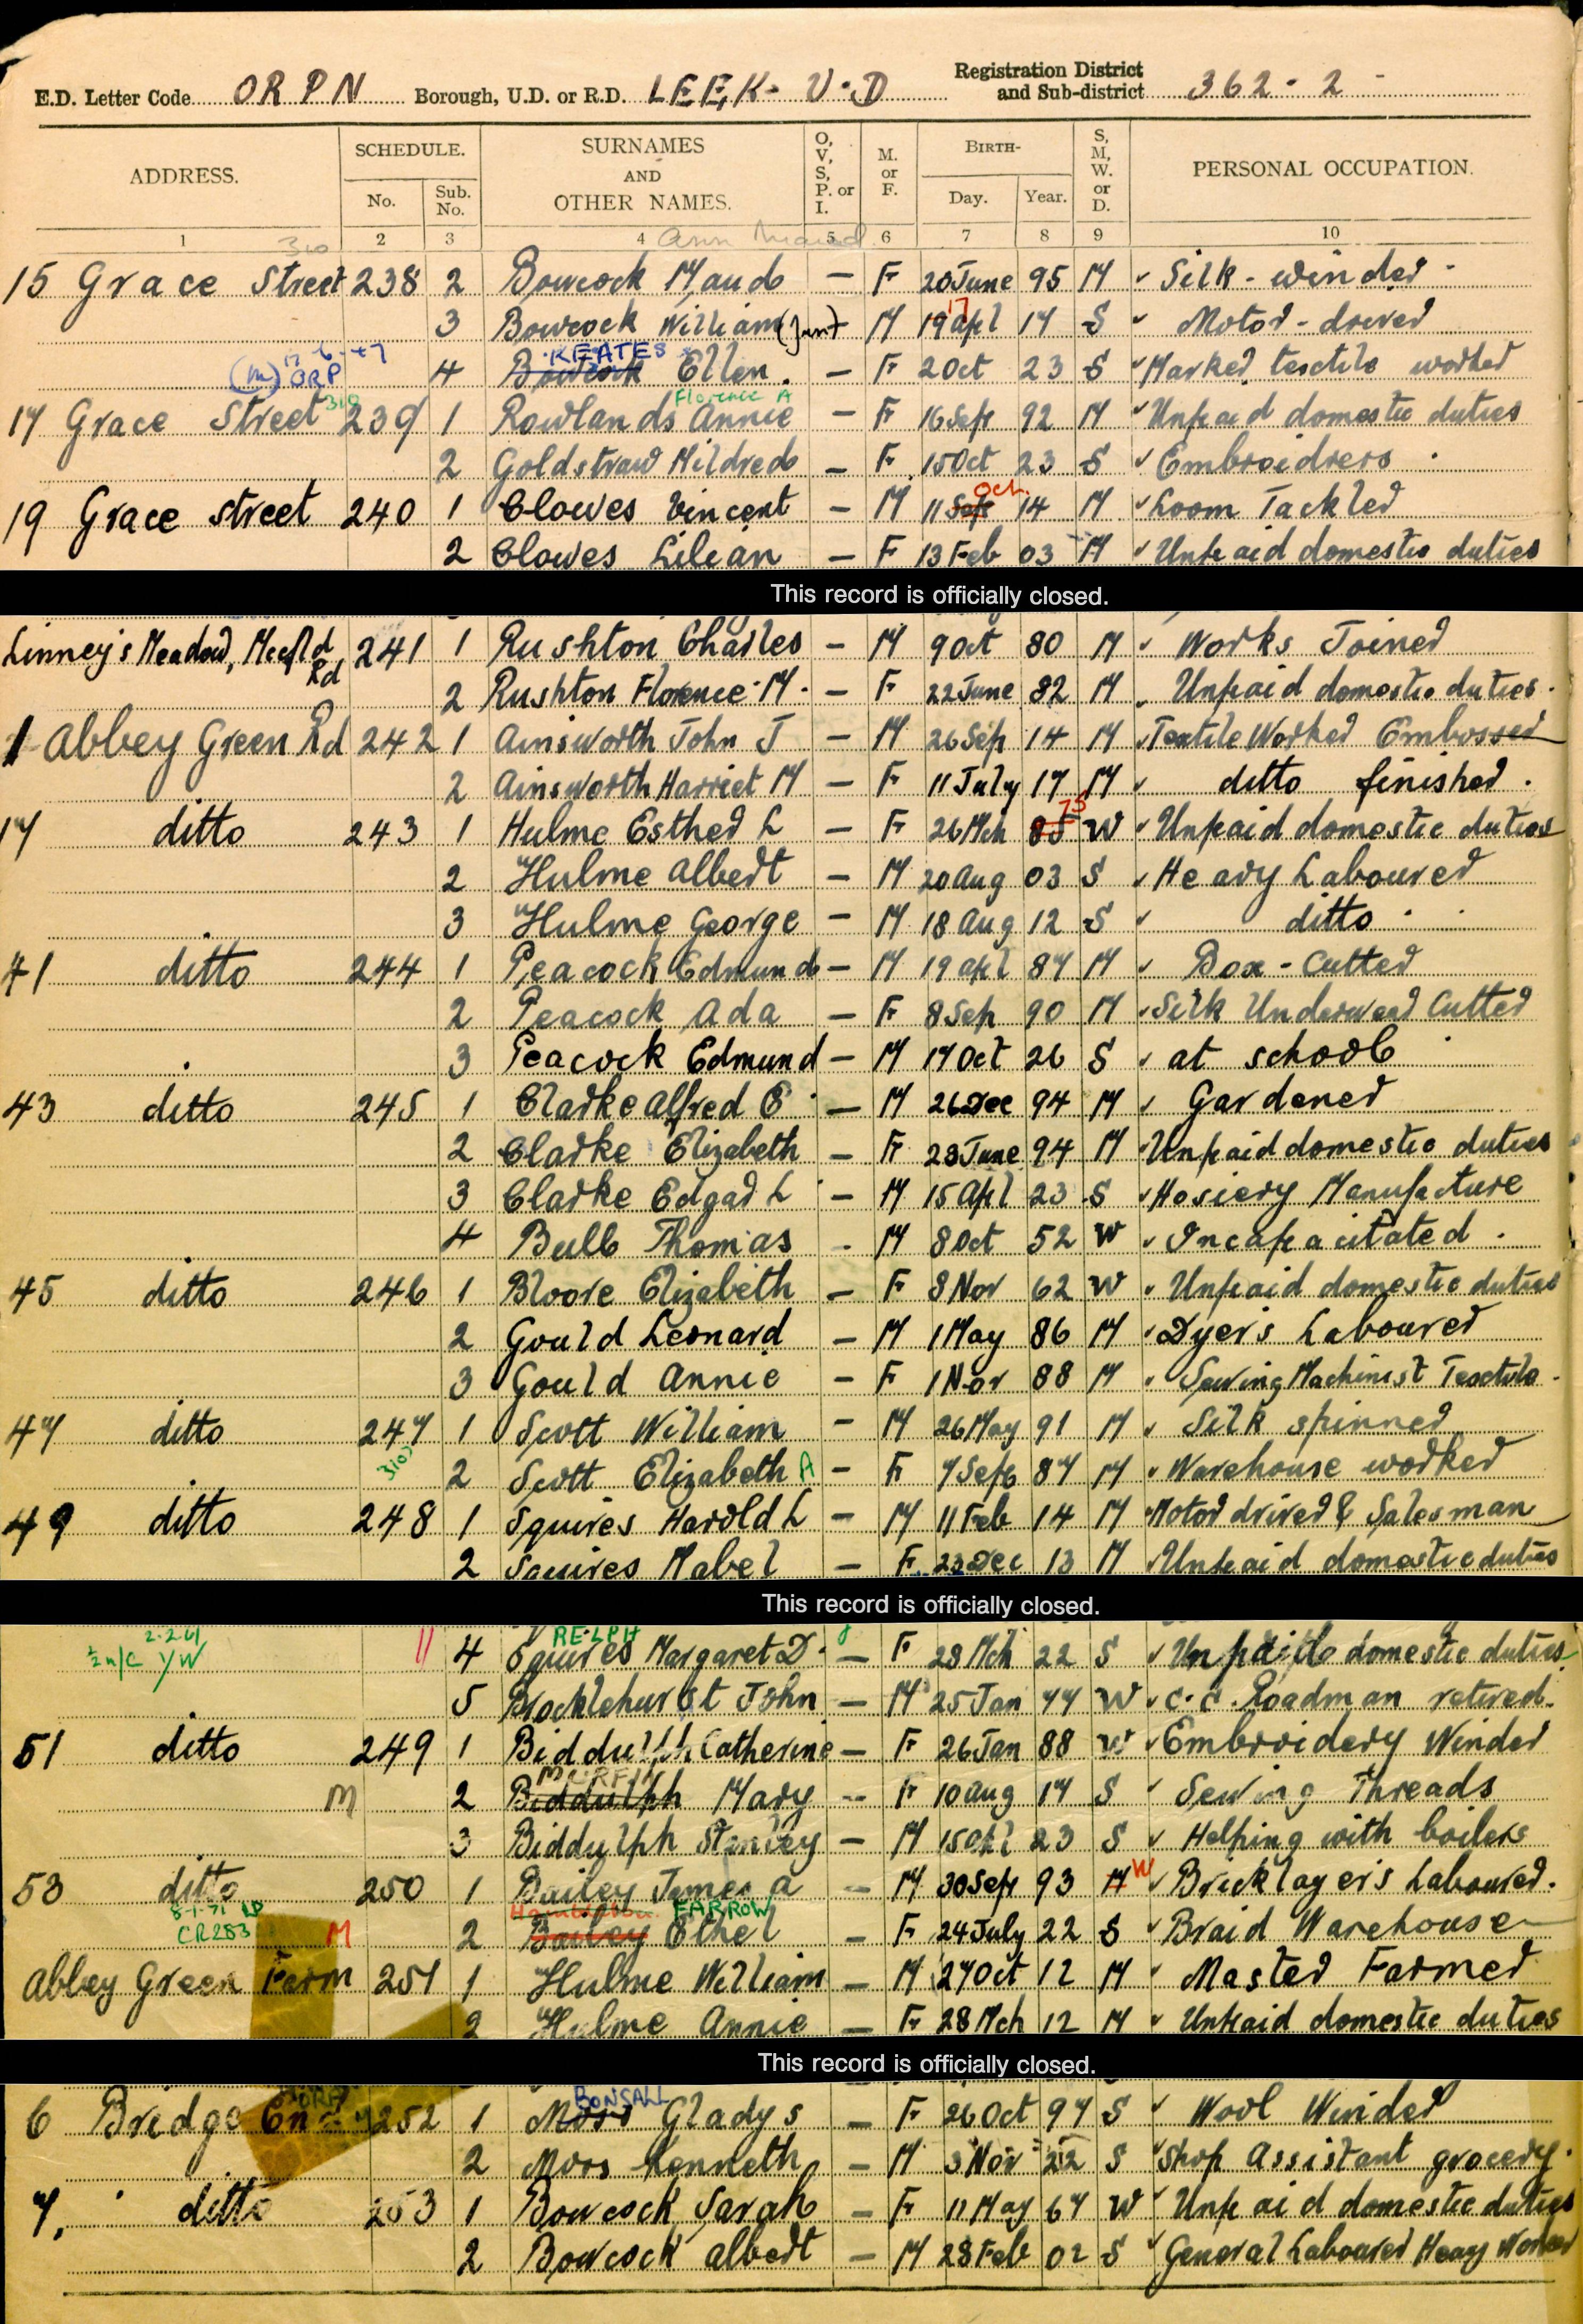 E.D. Letter Code ORPN Borough, U.D. or R.D. LEEK. U.D Registration District and Sub-district 362-2
ADDRESS. SCHEDULE. No. Sub. No. SURNAMES AND OTHER NAMES. O, V, S, P. or I. M. or F. BIRTH- Day. Year. S, M, W. or D. PERSONAL OCCUPATION.
1 2 3 4 5 6 7 8 9 10
310 Ann Maud
15 Grace Street 238 2 Bowcock Maud — F 20 June 95 M ✓ Silk-winder
17
3 Bowcock William (Jun) — M 19 Apl 17 S ✓ Motor-driver
(m) 17-6-47 ORP KEATES
4 Bowcock Ellen. — F 2 Oct 23 S ✓ Marker textile worker
310 Florence A
17 Grace Street 239 1 Rowlands Annie — F 16 Sep 92 M ✓ Unpaid domestic duties
2 Goldstraw Mildred — F 15 Oct 23 S ✓ Embroiderers
Oct.
19 Grace street 240 1 Clowes Vincent — M 11 Sep 14 M ✓ Loom Tackler
2 Clowes Lilian — F 13 Feb 03 M ✓ Unpaid domestic duties
This record is officially closed.
Linney's Meadow, Mcfld Rd 241 1 Rushton Charles — M 9 Oct 80 M ✓ Works Joiner
2 Rushton Florence M. — F 22 June 82 M Unpaid domestic duties.
1 Abbey Green Rd 242 1 Ainsworth John J — M 26 Sep 14 M ✓ Textile Worker Embosser
2 Ainsworth Harriet M — F 11 July 17 M ✓ ditto finisher.
75
17 ditto 243 1 Hulme Esther L — F 26 Mch 85 W ✓ Unpaid domestic duties
2 Hulme Albert — M 20 Aug 03 S ✓ Heavy Labourer
3 Hulme George — M 18 Aug 12 S ✓ ditto
41 ditto 244 1 Peacock Edmund — M 19 Apl 87 M ✓ Box-Cutter
2 Peacock Ada — F 8 Sep 90 M ✓ Silk Underwear Cutter
3 Peacock Edmund — M 17 Oct 26 S ✓ at school
43 ditto 245 1 Clarke Alfred E — M 26 Dec 94 M ✓ Gardener
2 Clarke Elizabeth — F 28 June 94 M ✓ Unpaid domestic duties
3 Clarke Edgar L — M 15 Apl 23 S ✓ Hosiery Manufacture
4 Bull Thomas - M 8 Oct 52 W ✓ Incapacitated.
45 ditto 246 1 Bloore Elizabeth — F 8 Nov 62 W Unpaid domestic duties
2 Gould Leonard — M 1 May 86 M ✓ Dyer's Labourer
3 Gould Annie — F 1 Nov 88 M Sewing Machinist Textile.
47 ditto 247 1 Scott William — M 26 May 91 M ✓ Silk spinner
310
2 Scott Elizabeth A — F 7 Sep 87 M ✓ Warehouse worker
49 ditto 248 1 Squires Harold L — M 11 Feb 14 M Motor driver & Salesman
2 Squires Mabel — F 23 Dec 13 M ✓ Unpaid domestic duties
This record is officially closed.
2.2.61 RELPH
½ n/c YW 11 4 Squires Margaret D. — F 28 Mch 22 S ✓ Unpaid domestic duties
5 Brocklehurst John — M 25 Jan 74 W ✓ C.C. Roadman retired.
51 ditto 249 1 Biddulph Catherine — F 26 Jan 88 W ✓ Embroidery Winder
M 2 Biddulph Mary — F 10 Aug 17 S ✓ Sewing Threads
3 Biddulph Stanley — M 15 Apl 23 S ✓ Helping with boilers
53 ditto 250 1 Bailey James A — M 30 Sep 93 M W ✓ Bricklayer's Labourer.
8-1-71 FARROW
CR283 M 2 Bailey Ethel — F 24 July 22 S ✓ Braid Warehouse
Abbey Green Farm 251 1 Hulme William — M 27 Oct 12 M ✓ Master Farmer
2 Hulme Annie — F 28 Mch 12 M ✓ Unpaid domestic duties
This record is officially closed.
BONSALL
6 Bridge End 252 1 Moss Gladys — F 26 Oct 97 S ✓ Wool Winder
2 Moss Kenneth — M 3 Nov 22 S ✓ Shop Assistant grocery.
7. ditto 253 1 Bowcock Sarah — F 11 May 67 W ✓ Unpaid domestic duties
2 Bowcock Albert — M 28 Feb 02 S ✓ General Labourer Heavy Worker